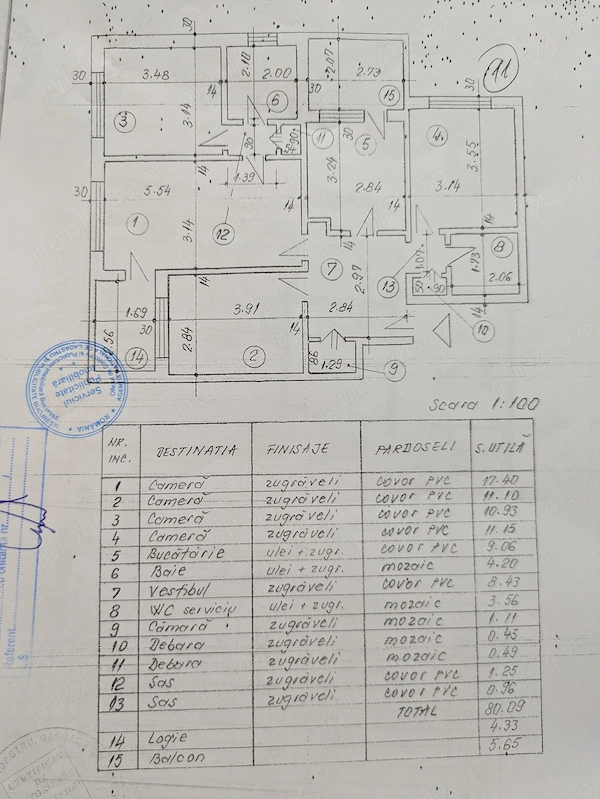 30
11
3.48
30
14
2.10
2.00
6
2.07
2.73
30
15
30
3
3.14
11
30
5
4
3.55
14
90
1.39
3.24
2.84
3.14
14
30
5.54
1
3.14
12
14
7
2.97
13
1.07
50
90
1.73
8
2.06
14
1.69
30
3.91
14
2.84
10
.56
14
2.84
2
98
1.29
9
Scara 1:100
NR. INC.
DESTINATIA
FINISAJE
PARDOSELI
S. UTILĂ
1 Cameră zugrăveli covor PVC 17.40
2 Cameră zugrăveli covor PVC 11.10
3 Cameră zugrăveli covor PVC 10.93
4 Cameră zugrăveli covor PVC 11.15
5 Bucătărie ulei + zugr. covor PVC 9.06
6 Baie ulei + zugr. mozaic 4.20
7 Vestibul zugrăveli covor PVC 8.43
8 WC serviciu ulei + zugr. mozaic 3.56
9 Cămară zugrăveli mozaic 1.11
10 Debara zugrăveli mozaic 0.45
11 Debara zugrăveli mozaic 0.49
12 Sas zugrăveli covor PVC 1.25
13 Sas zugrăveli covor PVC 0.96
TOTAL 80.09
14 Logie 4.33
15 Balcon 5.65
ROMANIA
Serviciul
Publicitate
Imobiliara
Referent